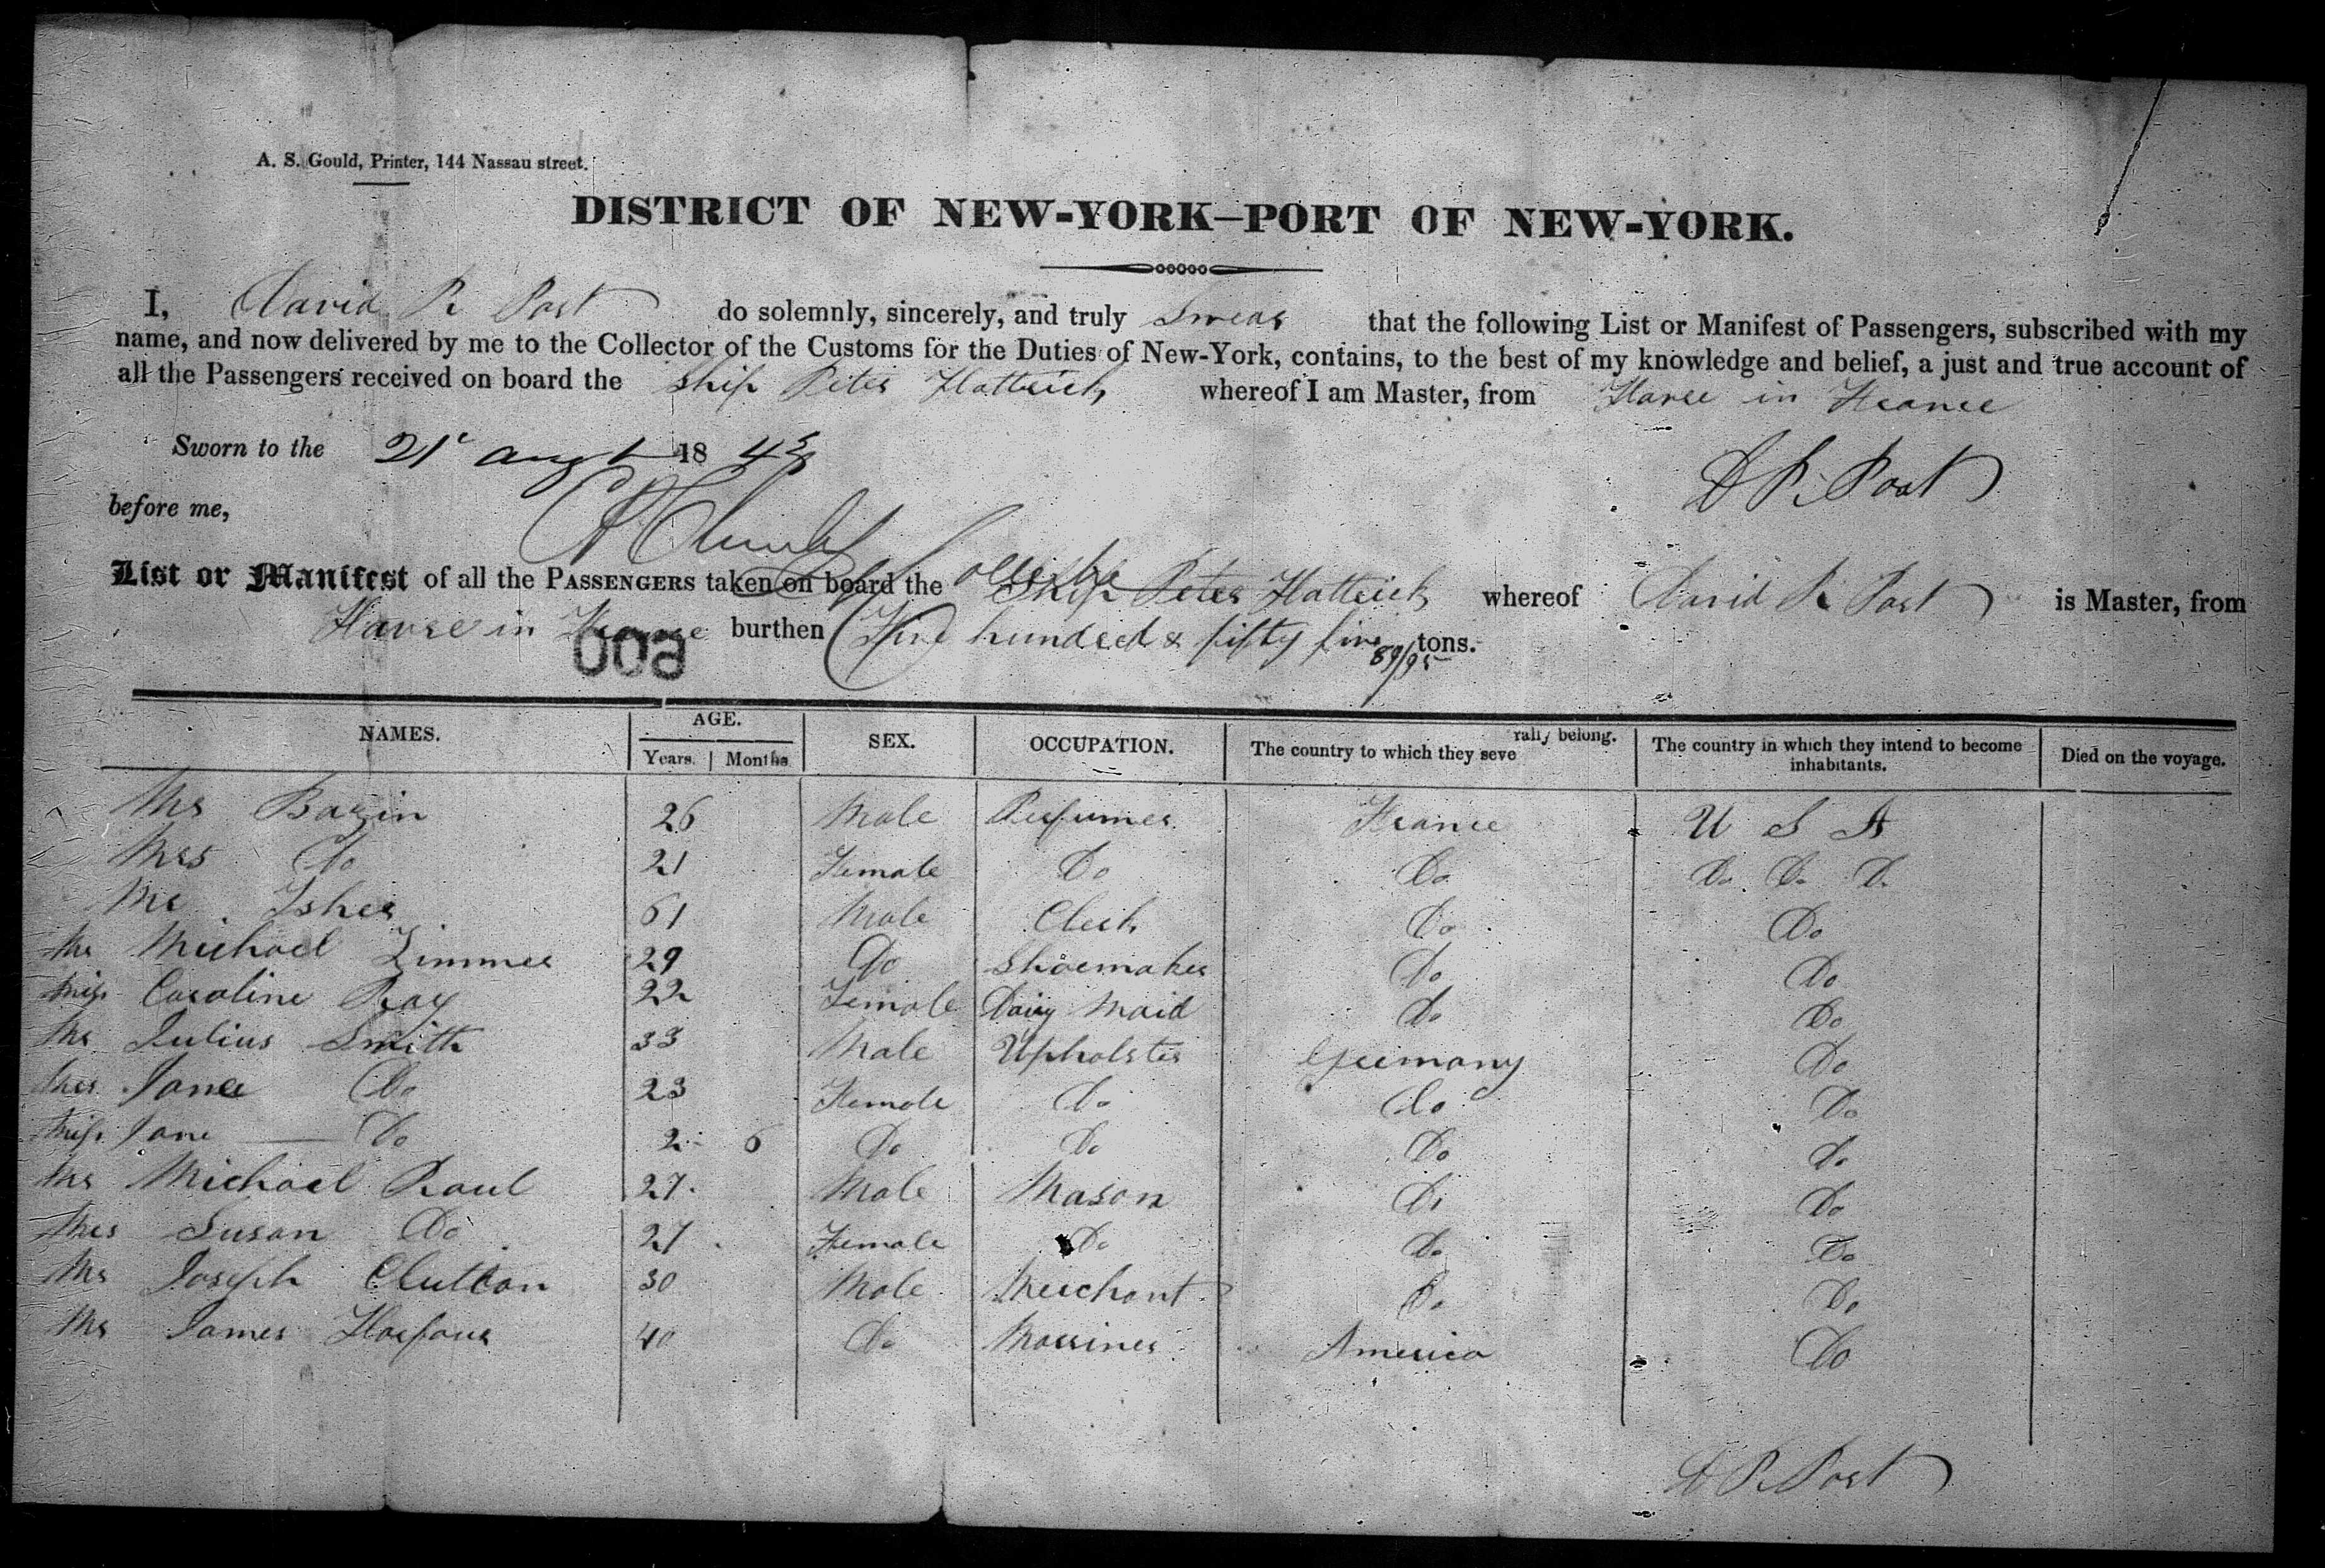 A. S. Gould, Printer, 144 Nassau street.
DISTRICT OF NEW-YORK—PORT OF NEW-YORK.
I, David R Post do solemnly, sincerely, and truly Swear that the following List or Manifest of Passengers, subscribed with my
name, and now delivered by me to the Collector of the Customs for the Duties of New-York, contains, to the best of my knowledge and belief, a just and true account of
all the Passengers received on board the Ship Peter Hattrick whereof I am Master, from Havre in France
Sworn to the 21 Augt 1843
D R Post
before me,
List or Manifest of all the PASSENGERS taken on board the Ship Peter Hattrick whereof David R Post is Master, from
Havre in France burthen Five hundred & fifty five 89/95 tons.
009
NAMES. AGE. SEX. OCCUPATION. The country to which they severally belong. The country in which they intend to become inhabitants. Died on the voyage.
Years. Months
Mr Bazin 26 Male Perfumer France U S A
Mrs Do 21 Female Do Do Do Do Do
Mr Isher 61 Male Clerk Do Do
Mr Michael Zimmer 29 Do Shoemaker Do Do
Miss Caroline Ray 22 Female Dairy Maid Do Do
Mr Julius Smith 33 Male Upholster Germany Do
Mrs Jane Do 23 Female Do Do Do
Miss Jane Do 2 6 Do Do Do Do
Mr Michael Raul 27 Male Mason Do Do
Mrs Susan Do 27 Female Do Do Do
Mr Joseph Clutton 30 Male Merchant Do Do
Mr James Harpour 40 Do Marriner America Do
D R Post